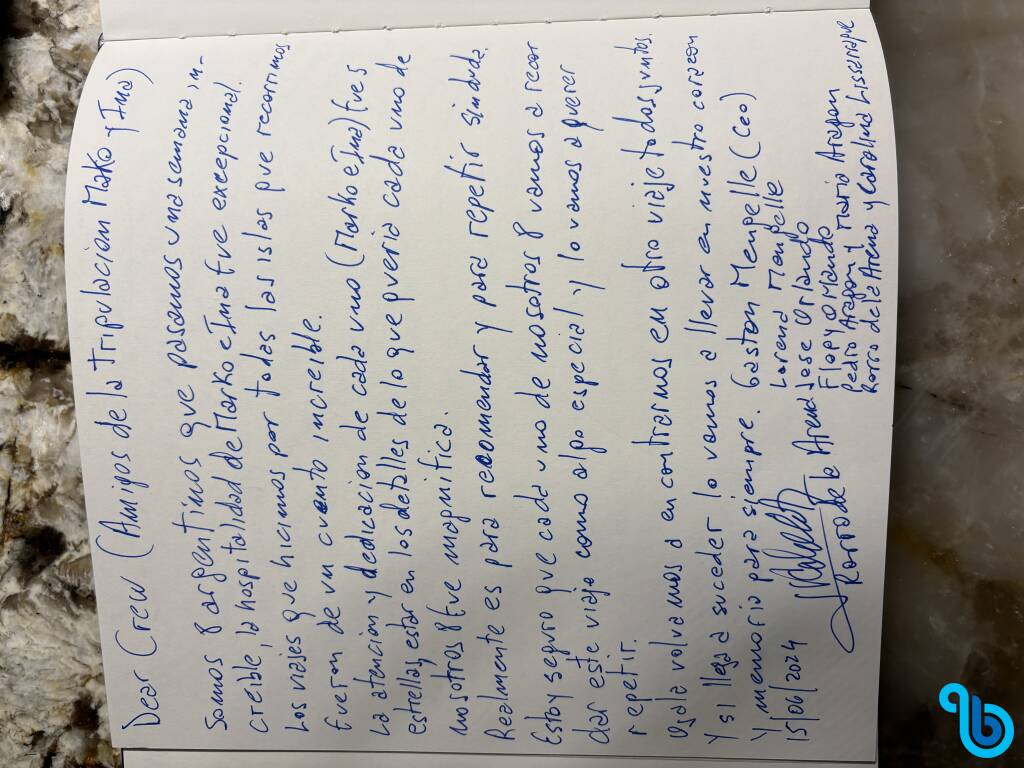 Dear Crew (Amigos de la tripulacion Marko y Ima)
Somos 8 argentinos que pasamos una semana, in-
creible, la hospitalidad de Marko e Ima fue excepcional.
Los viajes que hicimos por todas las islas que recorrimos
fueron de un cuento increible.
La atencion y dedicacion de cada uno (Marko e Ima) fue 5
estrellas, estar en los detalles de lo que queria cada uno de
nosotros 8 fue magnifica.
Realmente es para recomendar y para repetir sin duda.
Estoy seguro que cada uno de nosotros 8 vamos a recor
dar este viaje como algo especial y lo vamos a querer
repetir.
Ojala volvamos a encontrarnos en otro viaje todos juntos.
Y si llega suceder lo vamos a llevar en nuestro corazon
y memoria para siempre. Gaston Mengelle (Ceo)
15/06/2024
Lorena Mengelle
Jose Orlando
Flopy Orlando
Pedro Aragon y Maria Aragon
Rorro de la Arena y Carolina Lisseraque
Rorro de la Arena